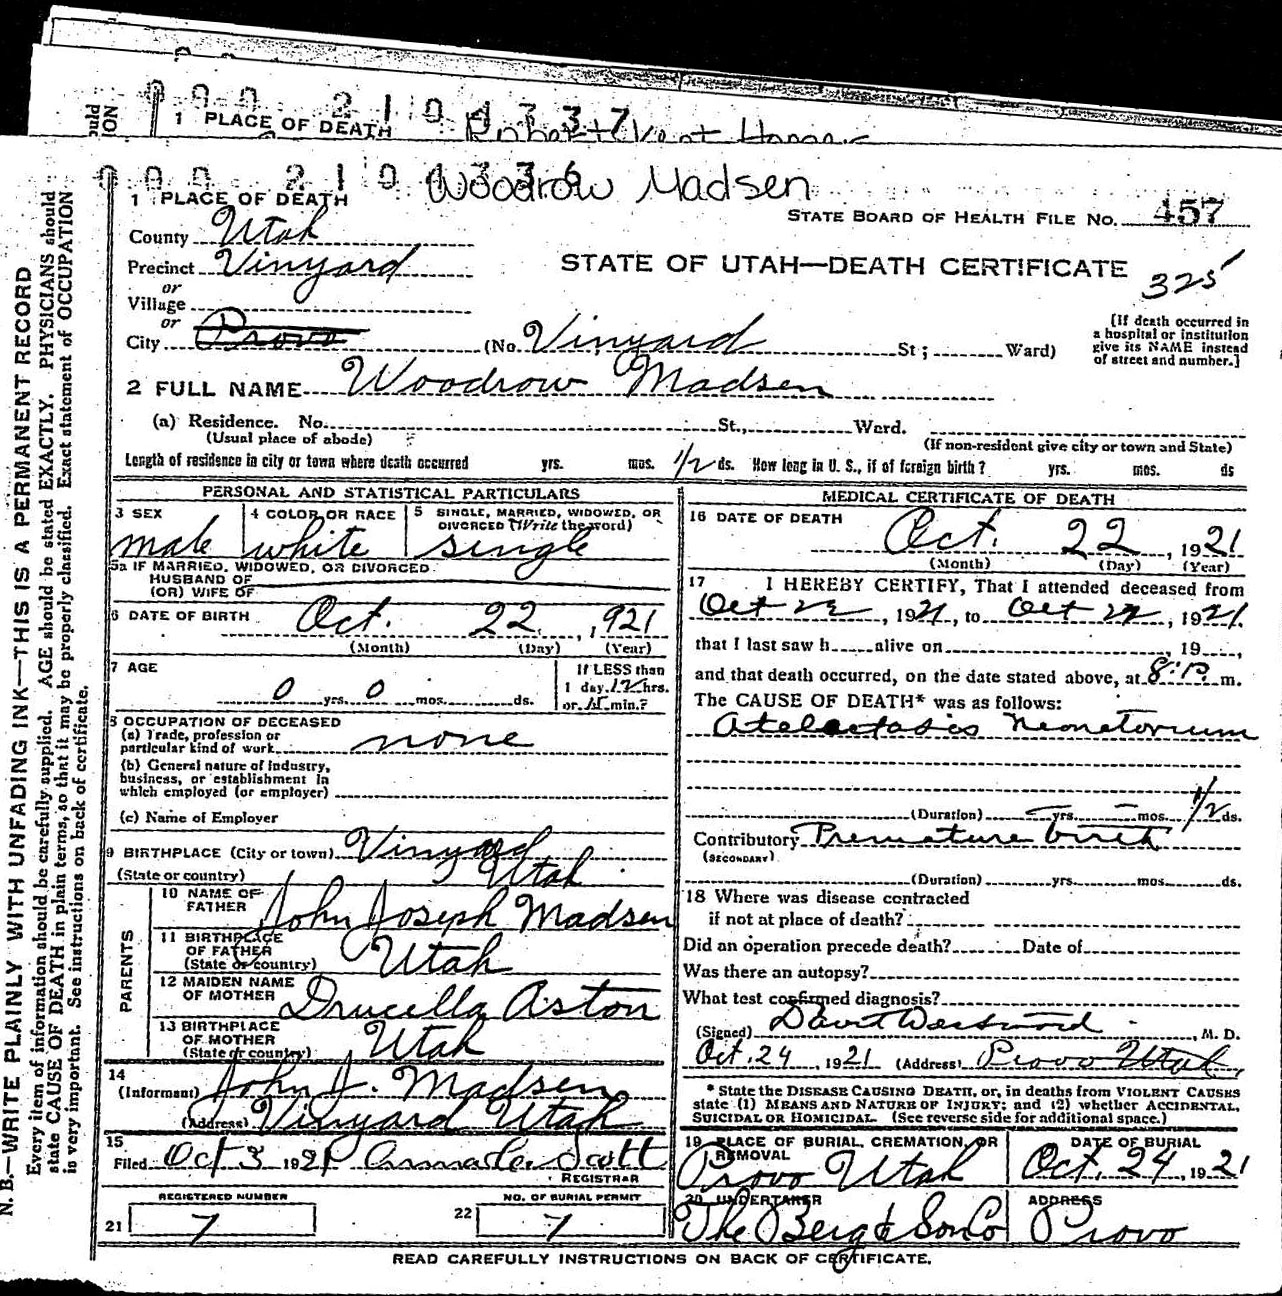 0 0 0 2 1 0 4 3 3 7
1 PLACE OF DEATH
000 210 4336
Woodrow Madsen
1 PLACE OF DEATH
STATE BOARD OF HEALTH FILE NO. 457
County Utah
Precinct Vinyard
STATE OF UTAH—DEATH CERTIFICATE
325
or
Village
or
City Provo (No Vinyard St; Ward)
[If death occurred in a hospital or institution give its NAME instead of street and number.]
2 FULL NAME Woodrow Madsen
(a) Residence. No. St., Ward.
(Usual place of abode) (If non-resident give city or town and State)
Length of residence in city or town where death occurred yrs. mos. 1/2 ds. How long in U. S., if of foreign birth? yrs. mos. ds
PERSONAL AND STATISTICAL PARTICULARS
3 SEX
male
4 COLOR OR RACE
white
5 SINGLE, MARRIED, WIDOWED, OR DIVORCED (Write the word)
single
5a IF MARRIED, WIDOWED, OR DIVORCED
HUSBAND OF
(OR) WIFE OF
6 DATE OF BIRTH Oct. 22, 1921
(Month) (Day) (Year)
7 AGE
0 yrs. 0 mos. ds.
If LESS than
1 day 12 hrs.
or min.?
8 OCCUPATION OF DECEASED
(a) Trade, profession or
particular kind of work none
(b) General nature of industry,
business, or establishment in
which employed (or employer)
(c) Name of Employer
9 BIRTHPLACE (City or town) Vinyard
(State or country) Utah
PARENTS
10 NAME OF FATHER John Joseph Madsen
11 BIRTHPLACE OF FATHER (State or country) Utah
12 MAIDEN NAME OF MOTHER Drucella Aston
13 BIRTHPLACE OF MOTHER (State or country) Utah
14
(Informant) John J. Madsen
(Address) Vinyard Utah
15
Filed Oct 3 1921 Scott
REGISTRAR
REGISTERED NUMBER
21 7
NO. OF BURIAL PERMIT
22 7
MEDICAL CERTIFICATE OF DEATH
16 DATE OF DEATH
Oct. 22, 1921
(Month) (Day) (Year)
17 I HEREBY CERTIFY, That I attended deceased from
Oct 22, 1921, to Oct 22, 1921.
that I last saw h alive on , 19 ,
and that death occurred, on the date stated above, at 8:P. m.
The CAUSE OF DEATH* was as follows:
Atelectasis Neonetorium
(Duration) yrs. mos. 1/2 ds.
Contributory Premature birth
(SECONDARY)
(Duration) yrs. mos. ds.
18 Where was disease contracted
if not at place of death?
Did an operation precede death? Date of
Was there an autopsy?
What test confirmed diagnosis?
(Signed) David Westwood, M. D.
Oct. 24, 1921 (Address) Provo Utah.
* State the DISEASE CAUSING DEATH, or, in deaths from VIOLENT CAUSES
state (1) MEANS AND NATURE OF INJURY; and (2) whether ACCIDENTAL,
SUICIDAL OR HOMICIDAL. (See reverse side for additional space.)
19 PLACE OF BURIAL, CREMATION, OR REMOVAL
Provo Utah
DATE OF BURIAL
Oct. 24, 1921
20 UNDERTAKER
The Berg & Son Co
ADDRESS
Provo
READ CAREFULLY INSTRUCTIONS ON BACK OF CERTIFICATE.
N. B.—WRITE PLAINLY WITH UNFADING INK—THIS IS A PERMANENT RECORD
Every item of information should be carefully supplied. AGE should be stated EXACTLY. PHYSICIANS should
state CAUSE OF DEATH in plain terms, so that it may be properly classified. Exact statement of OCCUPATION
is very important. See instructions on back of certificate.